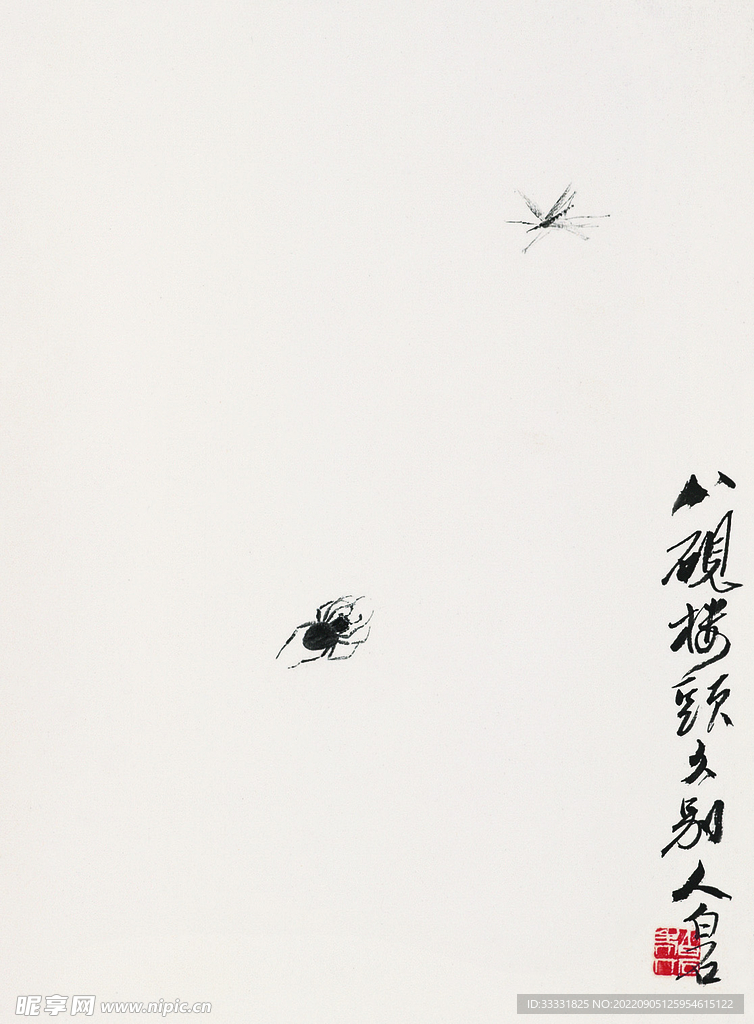 八硯楼頭久别人白石
昵享网 www.nipic.cn
ID:33331825 NO:20220905125954615122